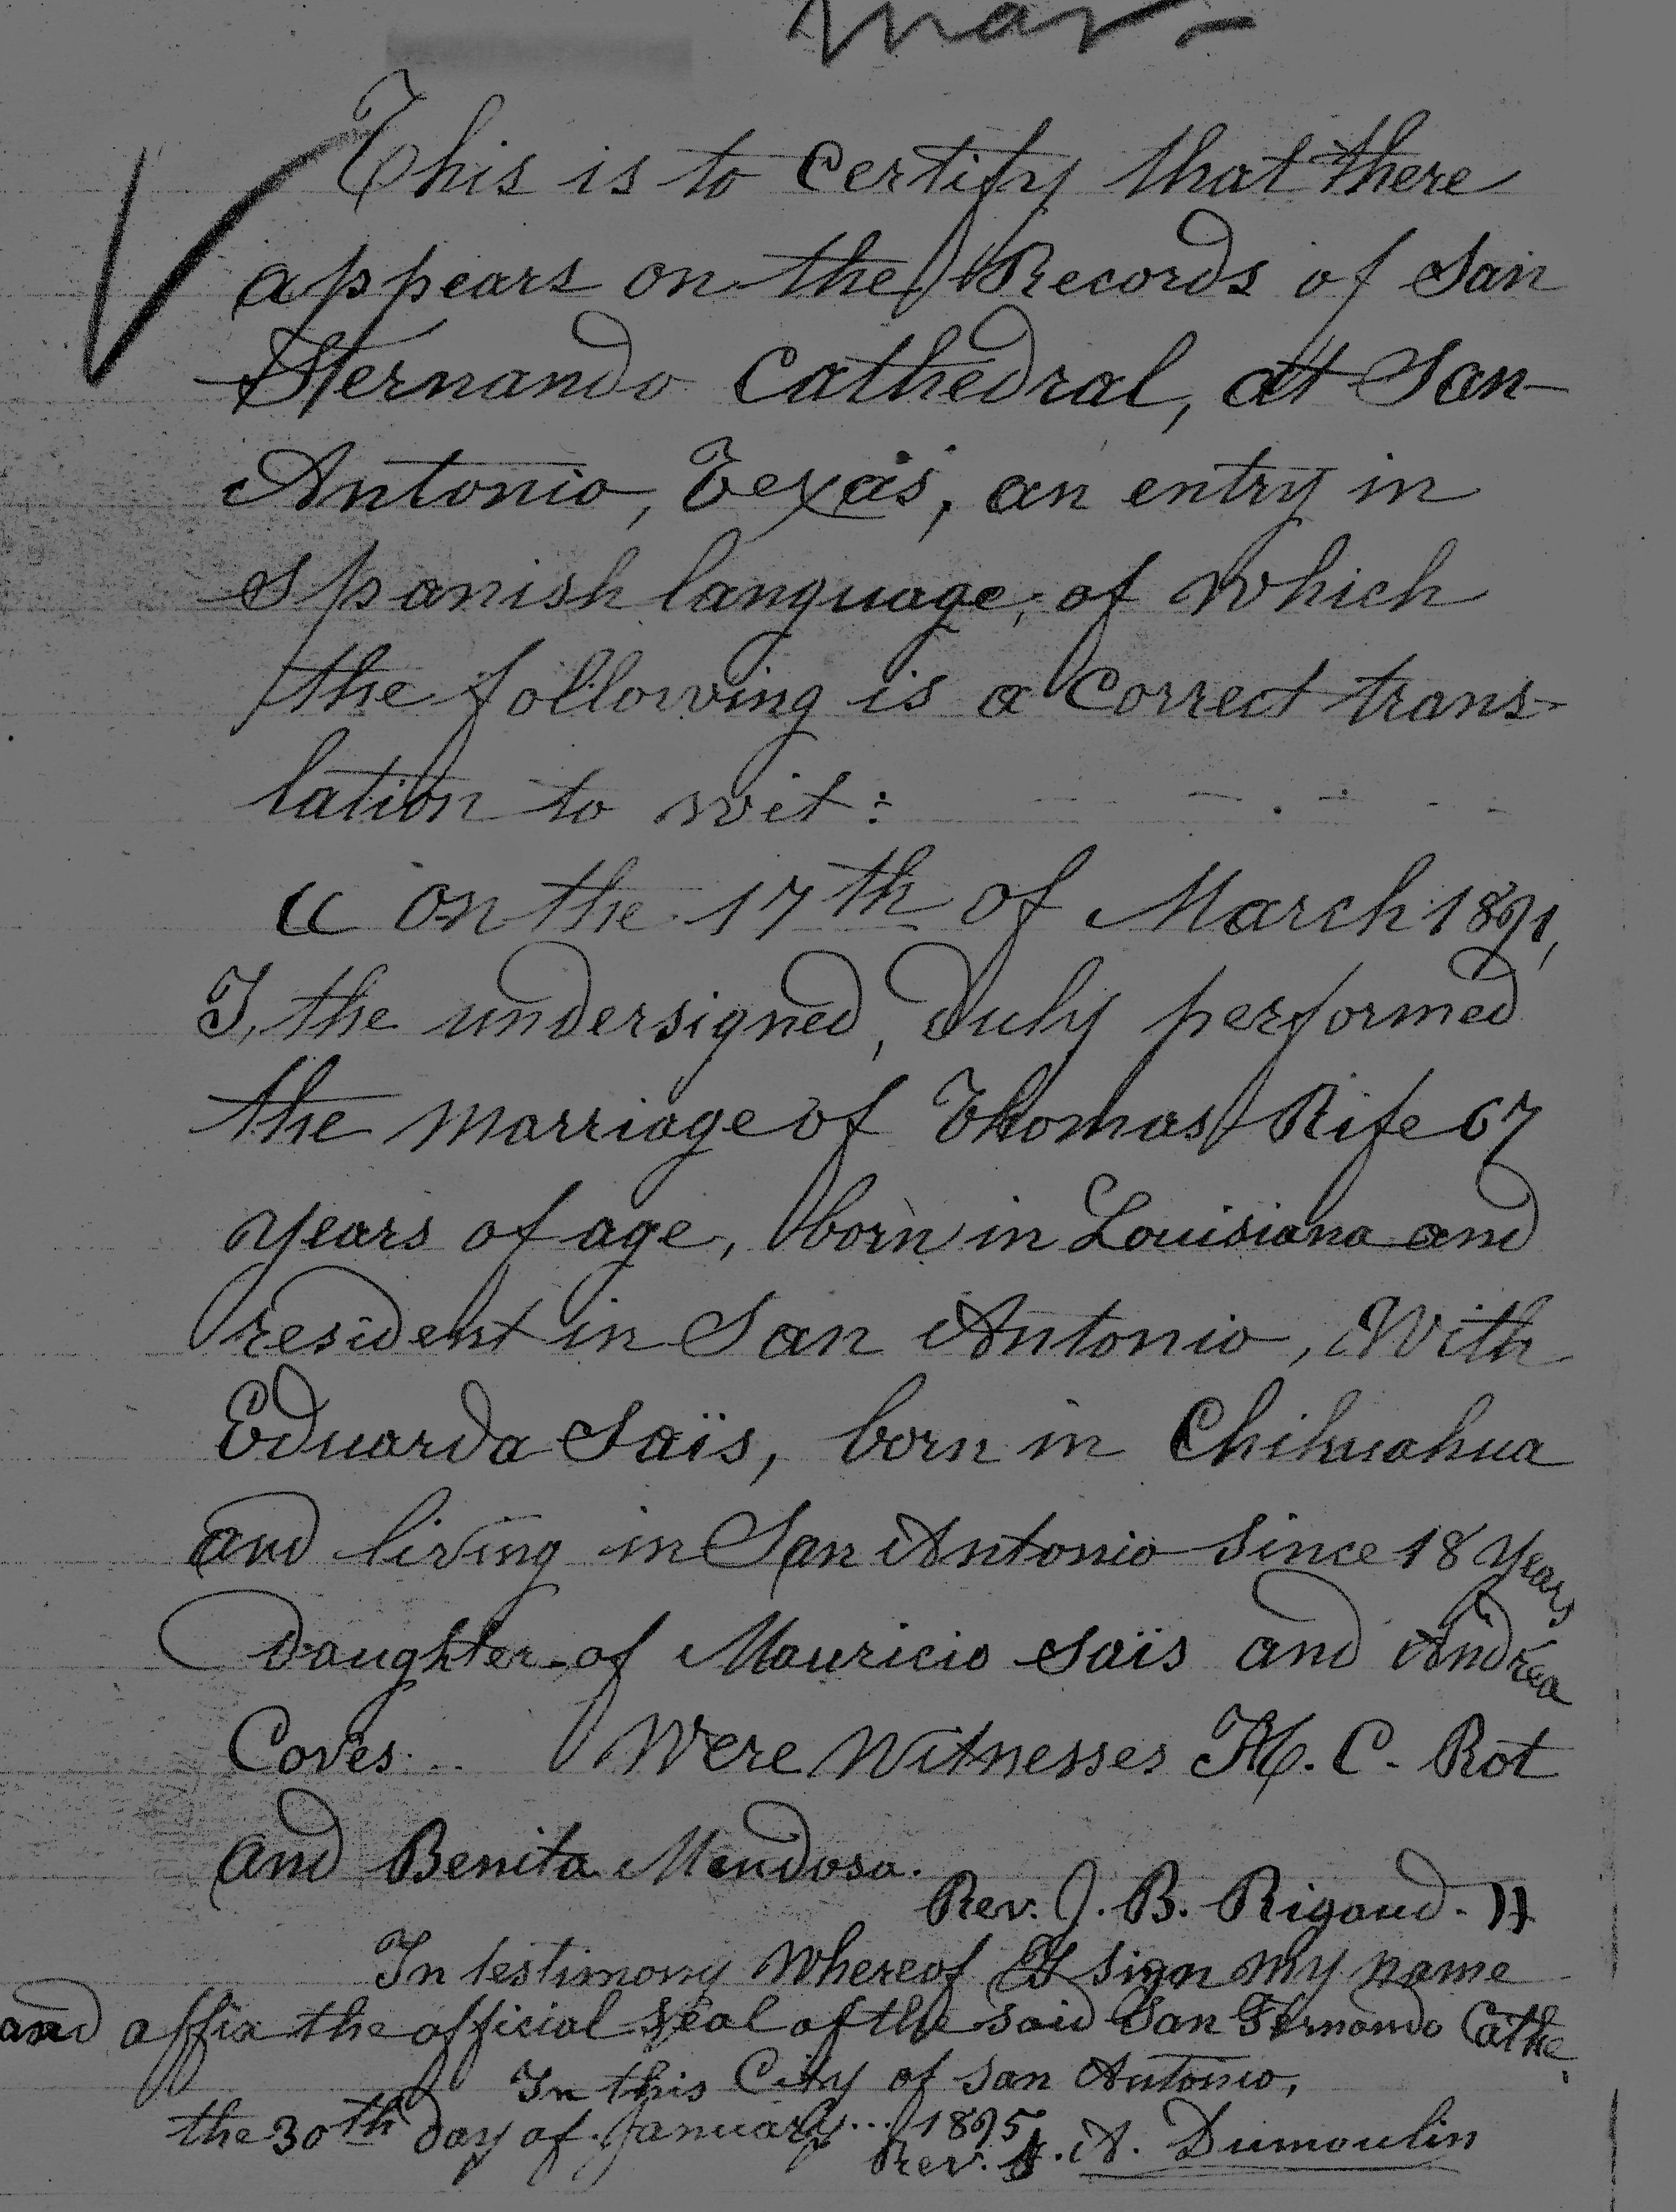 Mar -
This is to certify that there
appears on the Records of San
Fernando Cathedral, at San-
Antonio, Texas, an entry in
Spanish language, of which
the following is a correct trans-
lation to wit:
" on the 17th of March 1891,
I, the undersigned, duly performed
the marriage of Thomas Rife 67
years of age, born in Louisiana and
resident in San Antonio, With
Eduarda Saïs, born in Chihuahua
and living in San Antonio since 18 years
Daughter of Mauricio Saïs and Andrea
Coves. Were Witnesses H. C. Rot
and Benita Mendosa.
Rev. J. B. Rigaud. "
In testimony Whereof I sign my name
and affix the official seal of the said San Fernando Cathe.
In this City of San Antonio,
the 30th day of January... 1895
Rev. A. Dumoulin